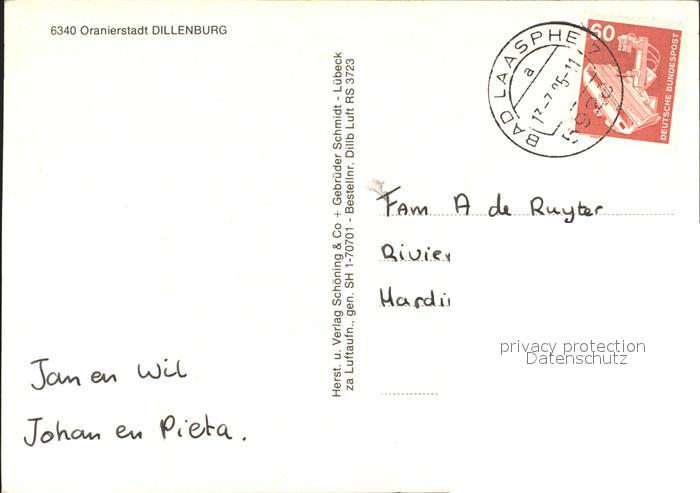 6340 Oranierstadt DILLENBURG
Herst. u. Verlag Schöning & Co + Gebrüder Schmidt - Lübeck
za Luftaufn., gen. SH 1-70701 - Bestellnr. Dillb Luft RS 3723
BAD LAASPHE
a
60
DEUTSCHE BUNDESPOST
Fam A de Ruyter
privacy protection
Datenschutz
Jan en Wil
Johan en Pieta.